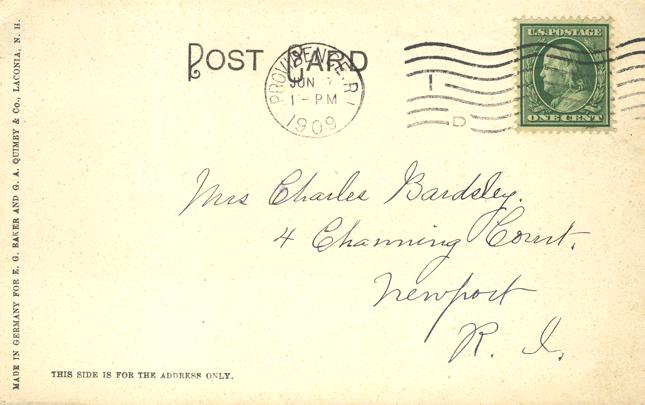 POST CARD
PROVIDENCE, R.I.
JUN 7
1 - PM
1909
1
D
U.S. POSTAGE
ONE CENT
Mrs Charles Bardsley.
4 Channing Court.
Newport
R. I.
THIS SIDE IS FOR THE ADDRESS ONLY.
MADE IN GERMANY FOR E. G. BAKER AND G. A. QUIMBY & Co., LACONIA, N. H.